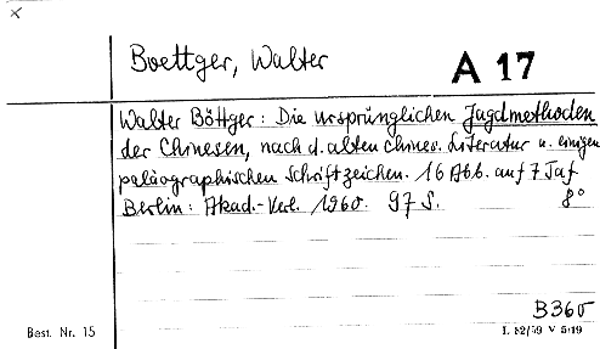 ×
Boettger, Walter
A 17
Walter Böttger: Die ursprünglichen Jagdmethoden
der Chinesen, nach d. alten chines. Literatur u. einigen
paläographischen Schriftzeichen. 16 Abb. auf 7 Taf
Berlin: Akad.-Verl. 1960. 97 S. 8°
B360
Best. Nr. 15
L 52/59 V 5 19